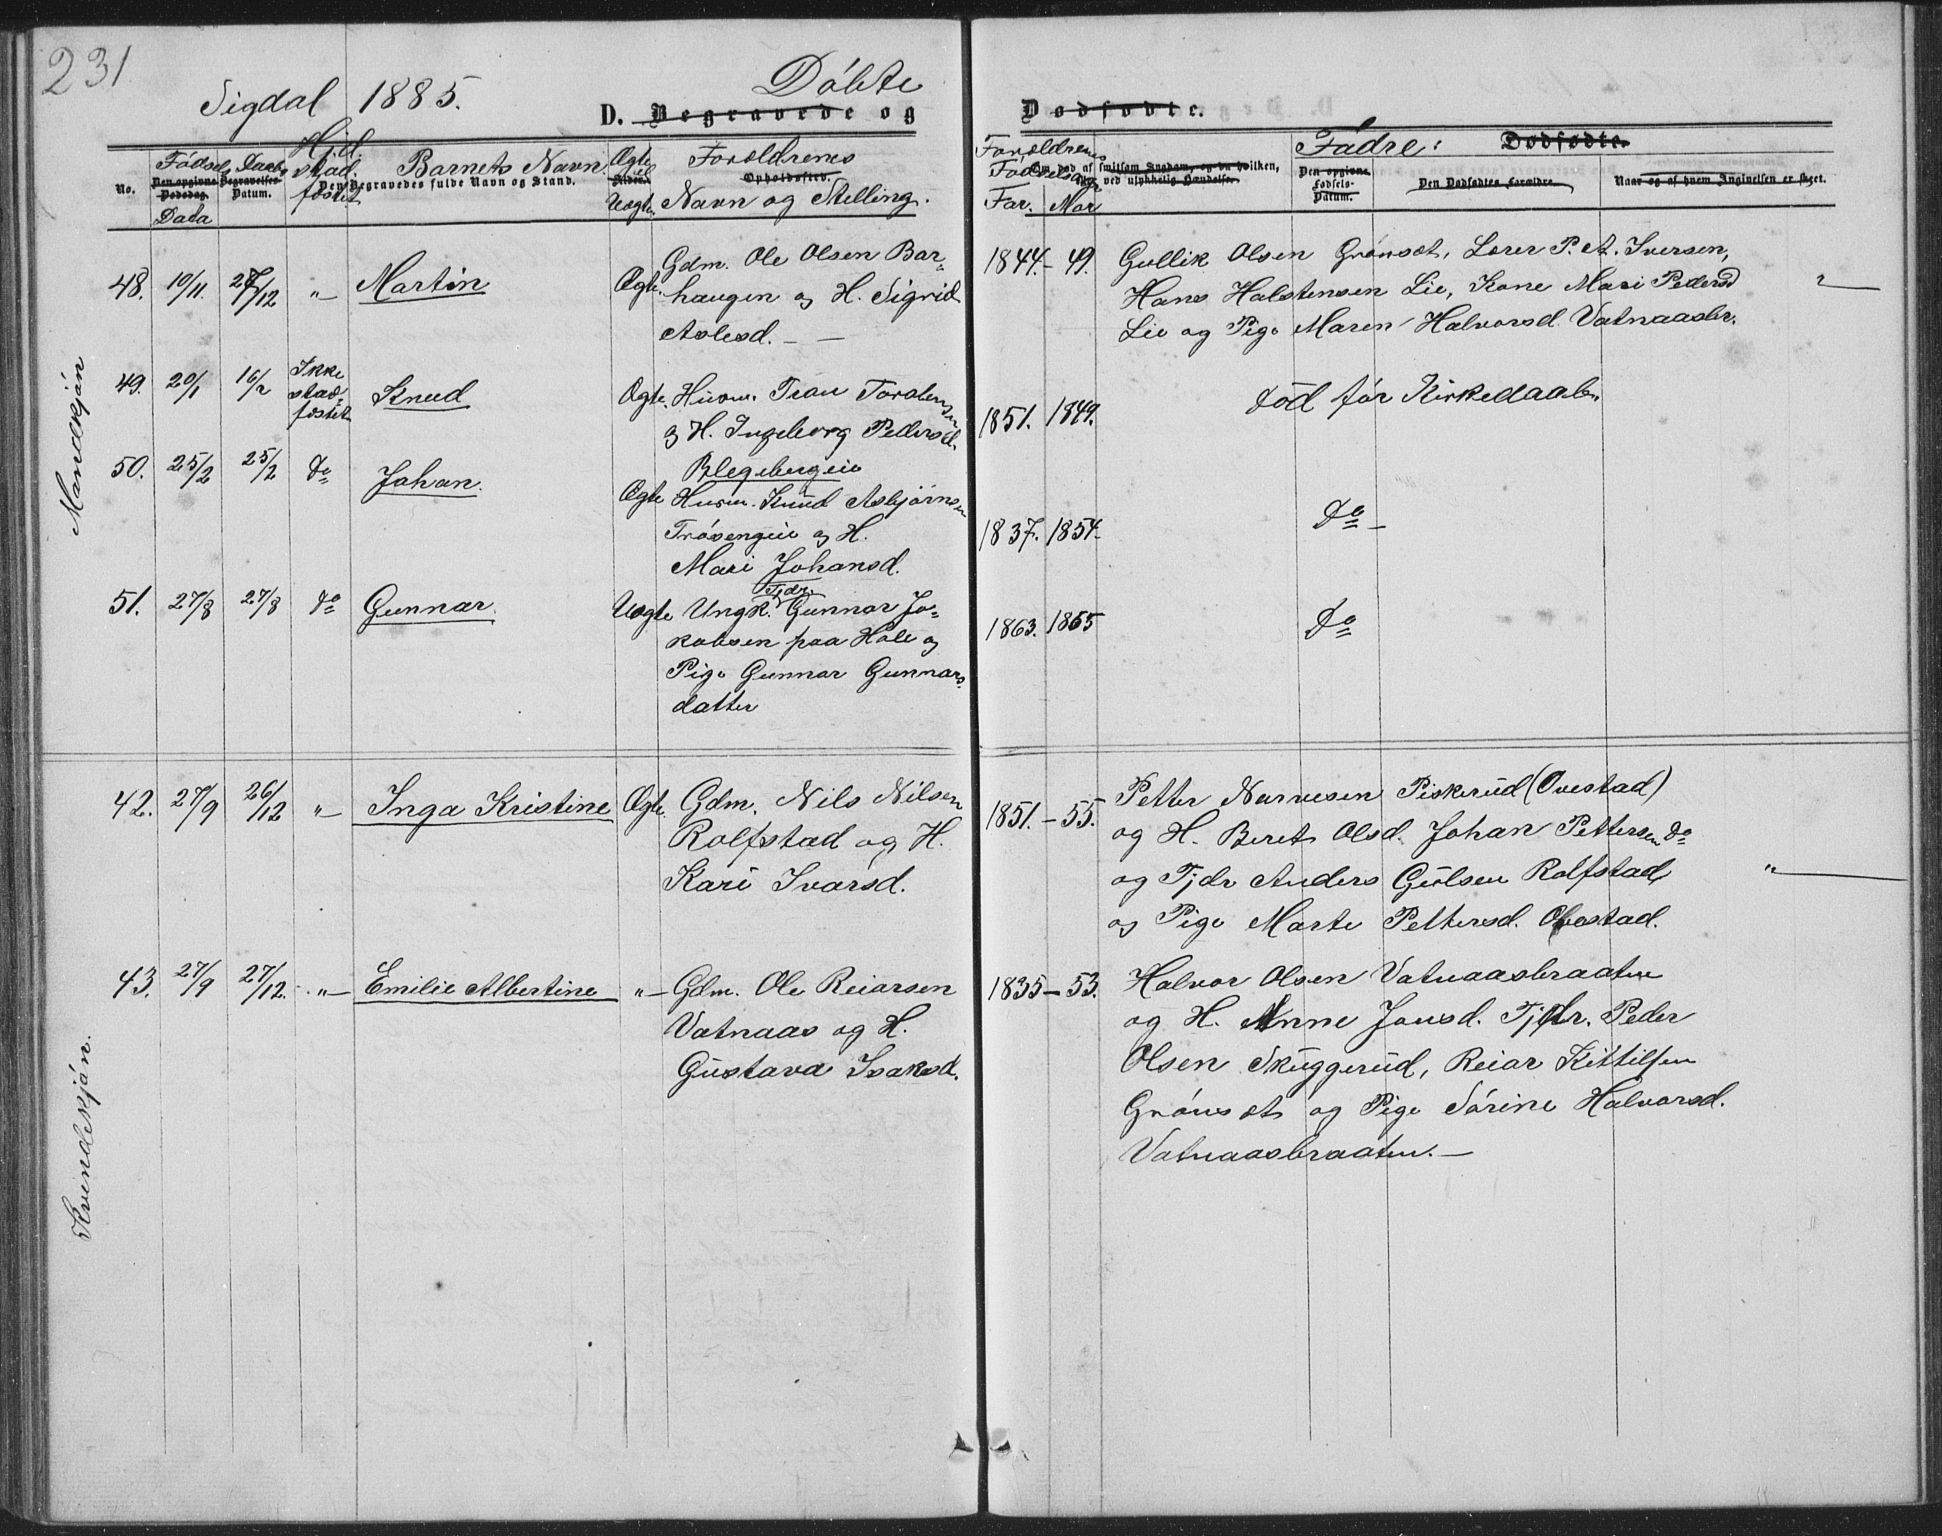 231
Sigdal 1885.
Døbte
D. Begravede og Dødfødte.
No. Fødsels Data Daabs Datum. Hjd. stad- fæstet Barnets Navn. Ægte el. Uægte. Forældrenes Navn og Stelling.
Den opgivne Dødsdag. Begravelses Datum. Den Begravedes fulde Navn og Stand. Alder. Opholdssted.
Forældrenes Fødselsaar Far. Mor Fadre: Dødfødte.
Om død af smitsom Sygdom, og da hvilken, eller ved ulykkelig Hændelse. Den opgivne Fødsels-Datum. Den Dødfødtes Forældre. Naar og af hvem Anginelsen er skeet.
Mandkjøn
48. 10/11. 27/12 „ Martin Ægte. Gdm. Ole Olsen Bar-
haugen og H. Sigrid
Aslesd. —
1844. - 49. Gullik Olsen Grønsæt, Lærer P. A. Iversen,
Hans Halstensen Lie, Kone Mari Pedersd
Lie og Pige Maren Halvorsd. Vatnaasbr.
49. 20/1 16/2 Ikke stad- fæstet Knud Ægte. Husm. Tran Torstensen
og H. Ingeborg Pedersd.
Blegebergeie
1851. 1849. Død før Kirkedaaben
50. 25/2 25/2 Do Johan. Ægte Husm. Knud Asbjørnsen
Trøvengeie og H.
Mari Johansd.
1837. 1854. Do
51. 27/8 27/8 Do Gunnar. Uægte Ungk. Tjdr. Gunnar Ja-
kobsen paa Hole og
Pige Gunnar Gunnars
datter
1863. 1865 Do
Kvindekjøn.
42. 27/9 26/12 „ Inga Kristine Ægte. Gdm. Nils Nilsen
Rolfstad og H.
Kari Ivarsd.
1851. - 55. Petter Narvesen Piskerud (Ovestad)
og H. Beret Olsd. Johan Pettersen Do
og Tjdr Anders Gulsen Rolfstad
og Pige Marte Pettersd. Ovestad.
43. 27/9 27/12. „ Emilie Albertine „ Gdm. Ole Reiarsen
Vatnaas og H.
Gustava Isaksd.
1835 - 53. Halvor Olsen Vatnaasbraaten
og H. Anne Jonsd. Tjdr. Peder
Olsen Skuggerud, Reiar Kittilsen
Grønsæt og Pige Sørine Halvorsd.
Vatnaasbraaten. —